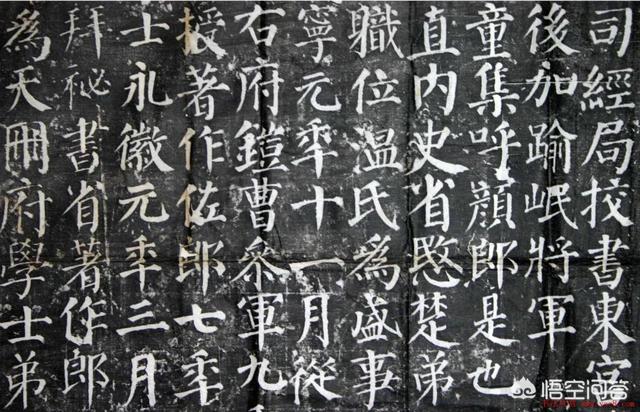 司經局校書東宮
後加踰岷將軍
童集呼顏郎是也
直內史省愍楚弟
職位温氏為盛事
寧元年十一月從
右府鎧曹參軍九
授著作佐郎七年
士永徽元年三月
拜祕書省著作郎
為天冊府學士弟
悟空问答